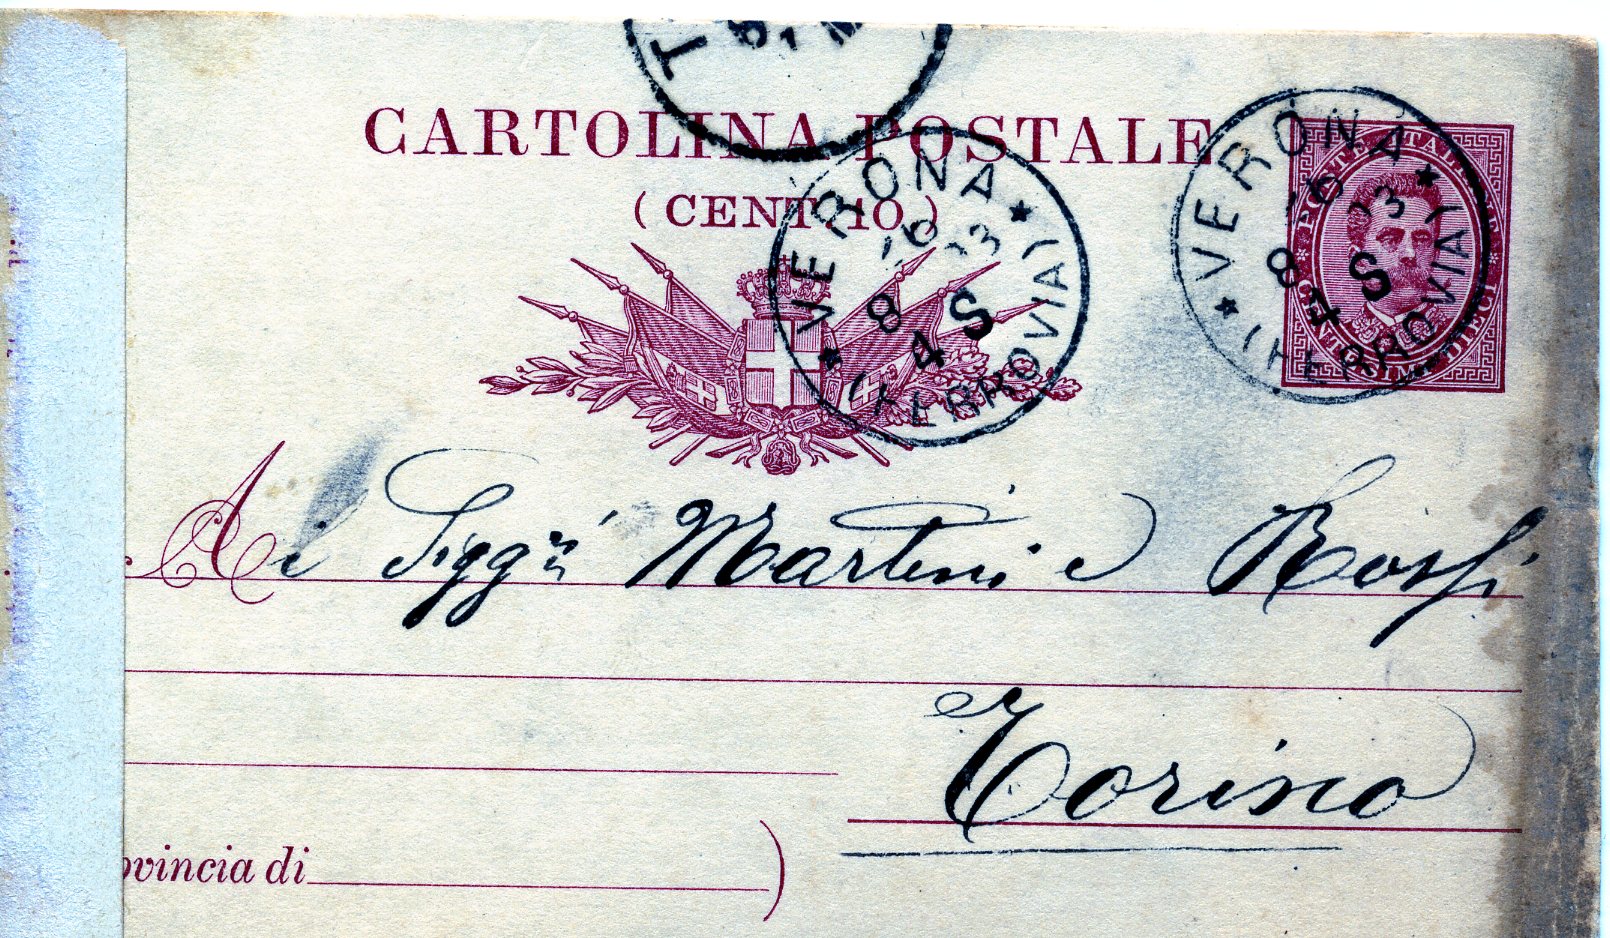 CARTOLINA POSTALE
(CENT. 10)
VERONA
8 4 S
(FERROVIA)
VERONA
8 4 S
(FERROVIA)
POSTE ITALIANE
CENTESIMI DIECI
Ai Sigg.ri Martini e Rossi
Torino
ovincia di )